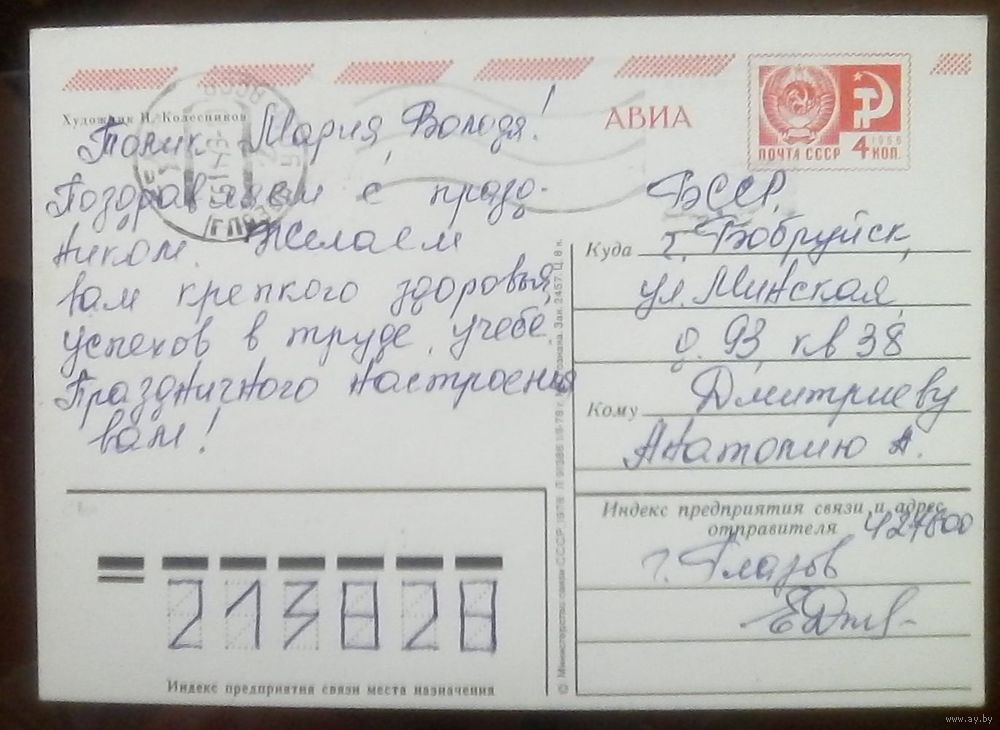 Художник И. Колесников
АВИА
ПОЧТА СССР
1966
4 КОП.
Толик, Мария, Володя!
Поздравляем с празд-
ником. Желаем
вам крепкого здоровья,
успехов в труде, учебе.
Праздничного настроения
вам!
БССР,
Куда г. Бобруйск,
ул. Минская,
д. 93, кв 38
Кому Дмитриеву
Анатолию А.
Индекс предприятия связи и адрес
отправителя 427600
г. Глазов
213828
Индекс предприятия связи места назначения
© Министерство связи СССР, 1978. Зак. 2457. Ц. 8 к.
www.ay.by